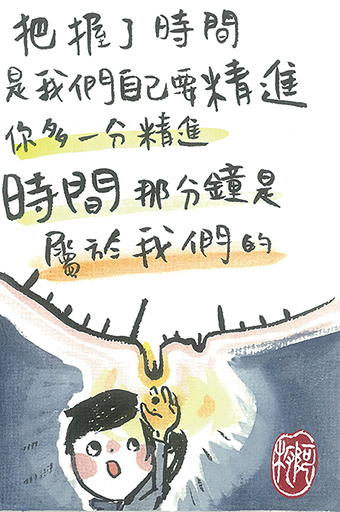 把握了時間
是我們自己要精進
你多一分精進
時間那分鐘是
屬於我們的